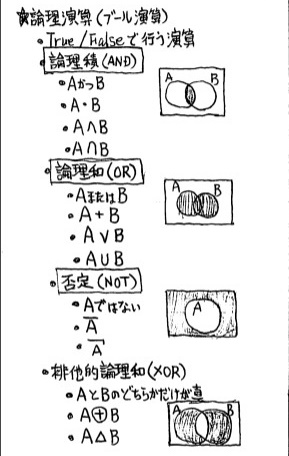 ☆論理演算(ブール演算)
•True/Falseで行う演算
•論理積(AND)
•AかつB
•A・B
•A∧B
•A∩B
A B
•論理和(OR)
•AまたはB
•A+B
•A∨B
•A∪B
A B
•否定(NOT)
•Aではない
•A̅
•A̅
A
•排他的論理和(XOR)
•AとBのどちらかだけが真
•A⊕B
•A△B
A B